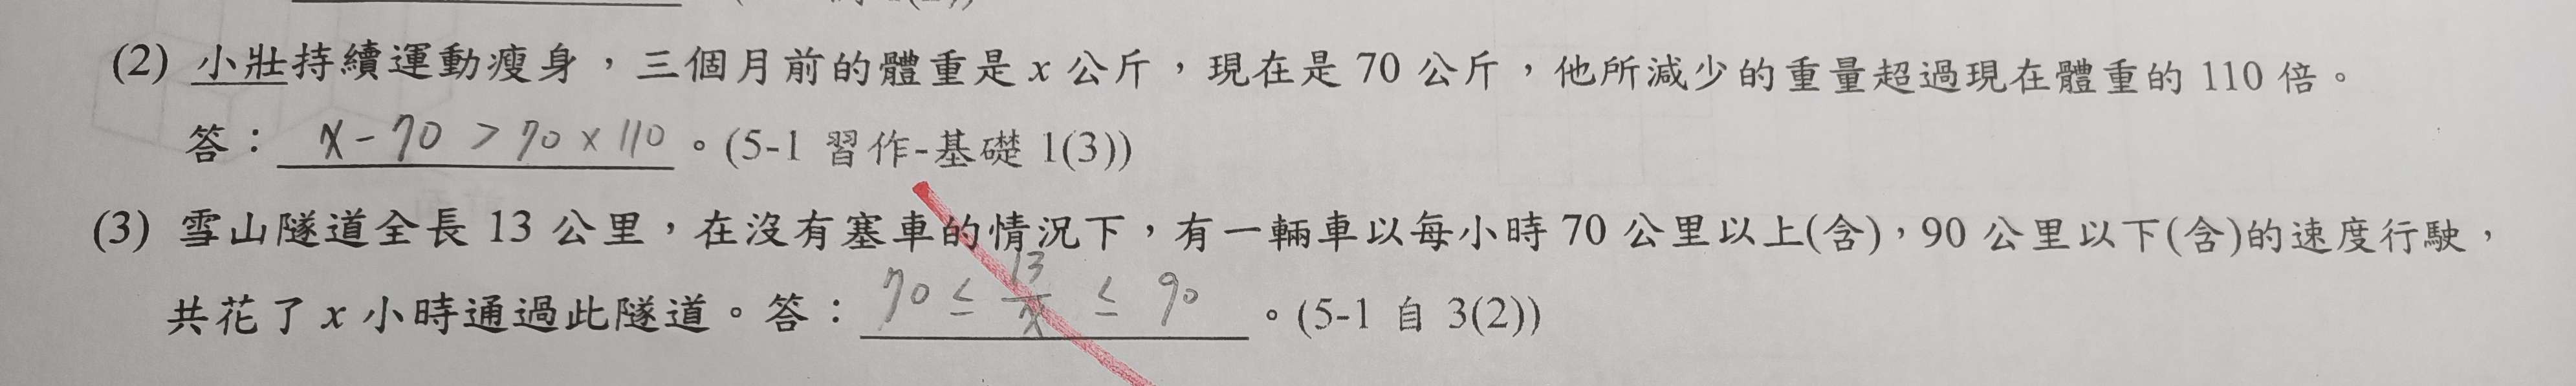 (2) 小壯持續運動瘦身，三個月前的體重是 x 公斤，現在是 70 公斤，他所減少的重量超過現在體重的 110 倍。
答：x - 70 > 70 x 110。(5-1 習作-基礎 1(3))
(3) 雪山隧道全長 13 公里，在沒有塞車的情況下，有一輛車以每小時 70 公里以上(含)，90 公里以下(含)的速度行駛，
共花了 x 小時通過此隧道。答：70 ≤ 13/x ≤ 90。(5-1 自 3(2))